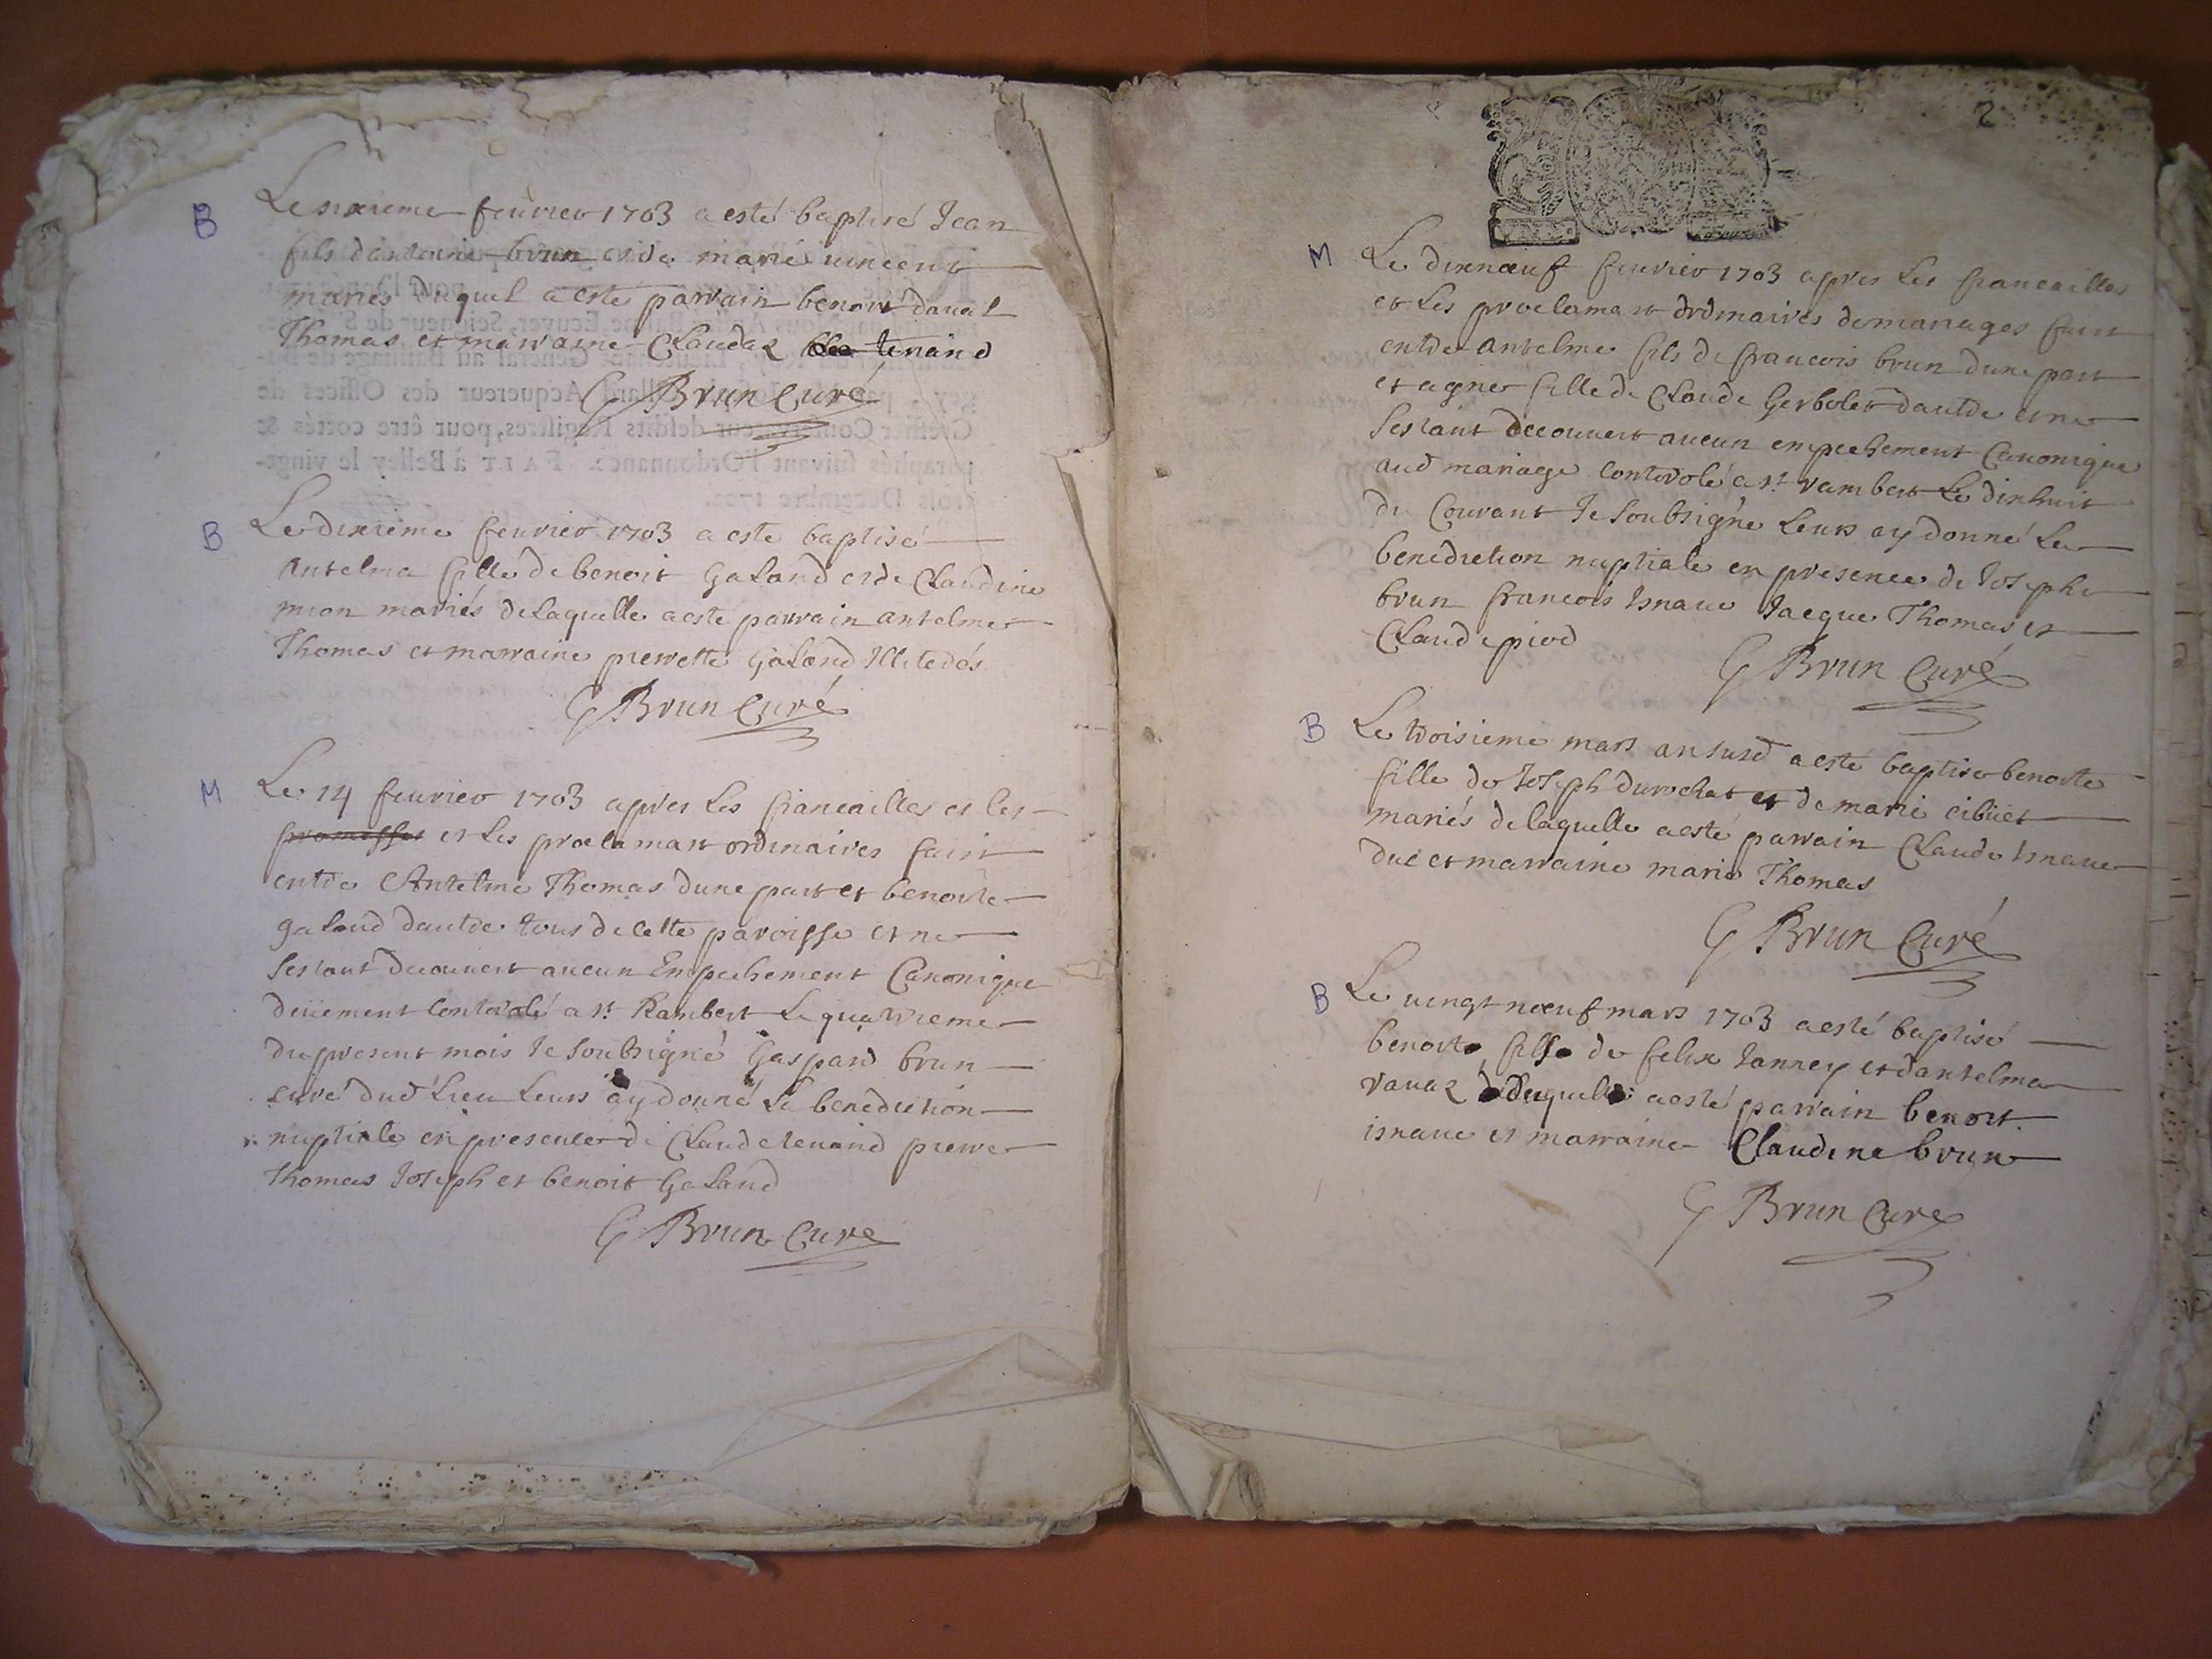 B
Le sixieme feuvrier 1703 a esté baptisé Jean
fils dantoine brun et de marie vincent
mariés duquel a esté parrain benoit
Thomas et marraine Claudaz tenand
G Brun Curé
B
Le dixieme feuvrier 1703 a este baptisé
Antelma fille de benoit Galand et de Claudine
mion mariés de laquelle a este parrain antelme
Thomas et marraine pierrette Galand Illiterés
G Brun Curé
M
Le 14 feuvrier 1703 apres les fiancailles et les
promesses et les proclamats ordinaires fait
entre Antelme Thomas dune part et benoite
galand dautre tous de cette paroisse et ne
sestant decouvert aucun Empechement Canonique
deüement Controlé a st Rambert Le quatrieme
du present mois Je soubsigné Gaspard brun
curé dud Lieu Leurs ay donné La benediction
nuptiale en presence de Claude tenand pierre
Thomas Joseph et benoit Galand
G Brun Curé
2
M
Le dixnoeuf feuvrier 1703 apres Les fiancailles
et Les proclamats ordinaires de mariages fait
entre Antelme fils de francois brun dune part
et agnes fille de Claude Gerbolet dautre et ne
sestant decouvert aucun empechement Canonique
aud mariage Controlé a st rambert Le dixhuit
du Courant Je soubsigné Leurs ay donné La
benediction nuptiale en presence de Josephe
brun francois Jnaue Jacque Thomas et
Claude piod
G Brun Curé
B
Le troisieme mars an susd a esté baptise benoite
fille de Joseph durochat et de marie cibüet
mariés de laquelle a esté parrain Claude Jnaue
duc et marraine marie Thomas
G Brun Curé
B
Le vingt noeuf mars 1703 a esté baptisé
benoite fille de felix Janney et dantelma
ravaz duquelle a esté parrain benoit
isnaue et marraine Claudine brun
G Brun Curé